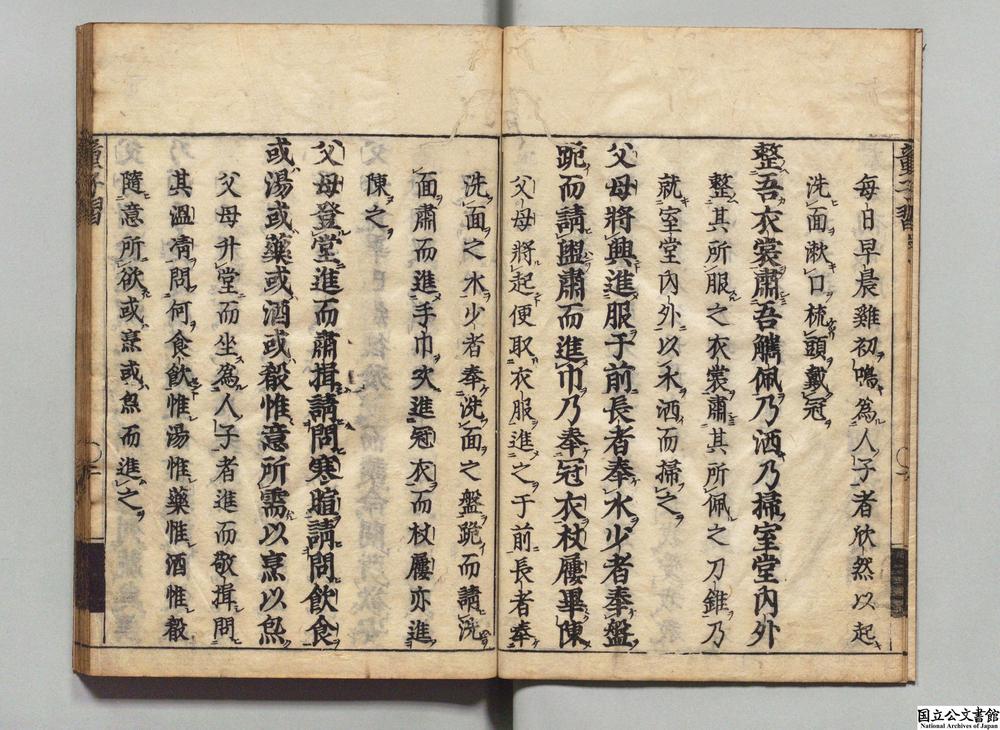 每日早晨雞初鳴為人子者欣然以起
洗面漱口梳頭戴冠
整吾衣裳肅吾觿佩乃洒乃掃室堂內外
整其所服之衣裳肅其所佩之刀錐乃
就室堂內外以水洒而掃之
父母將興進服于前長者奉水少者奉盤
跪而請盥肅而進巾乃奉冠衣杖屨畢陳
父母將起便取衣服進之于前長者奉
洗面之水少者奉洗面之盤跪而請洗
面肅而進手巾次進冠衣而杖屨亦進
陳之
父母登堂進而肅揖請問寒暄請問飲食
或湯或藥或酒或殽惟意所需以烹以炰
父母升堂而坐為人子者進而敬揖問
其溫凊問何食飲惟湯惟藥惟酒惟殽
隨意所欲或烹或炰而進之
童子習
国立公文書館
National Archives of Japan